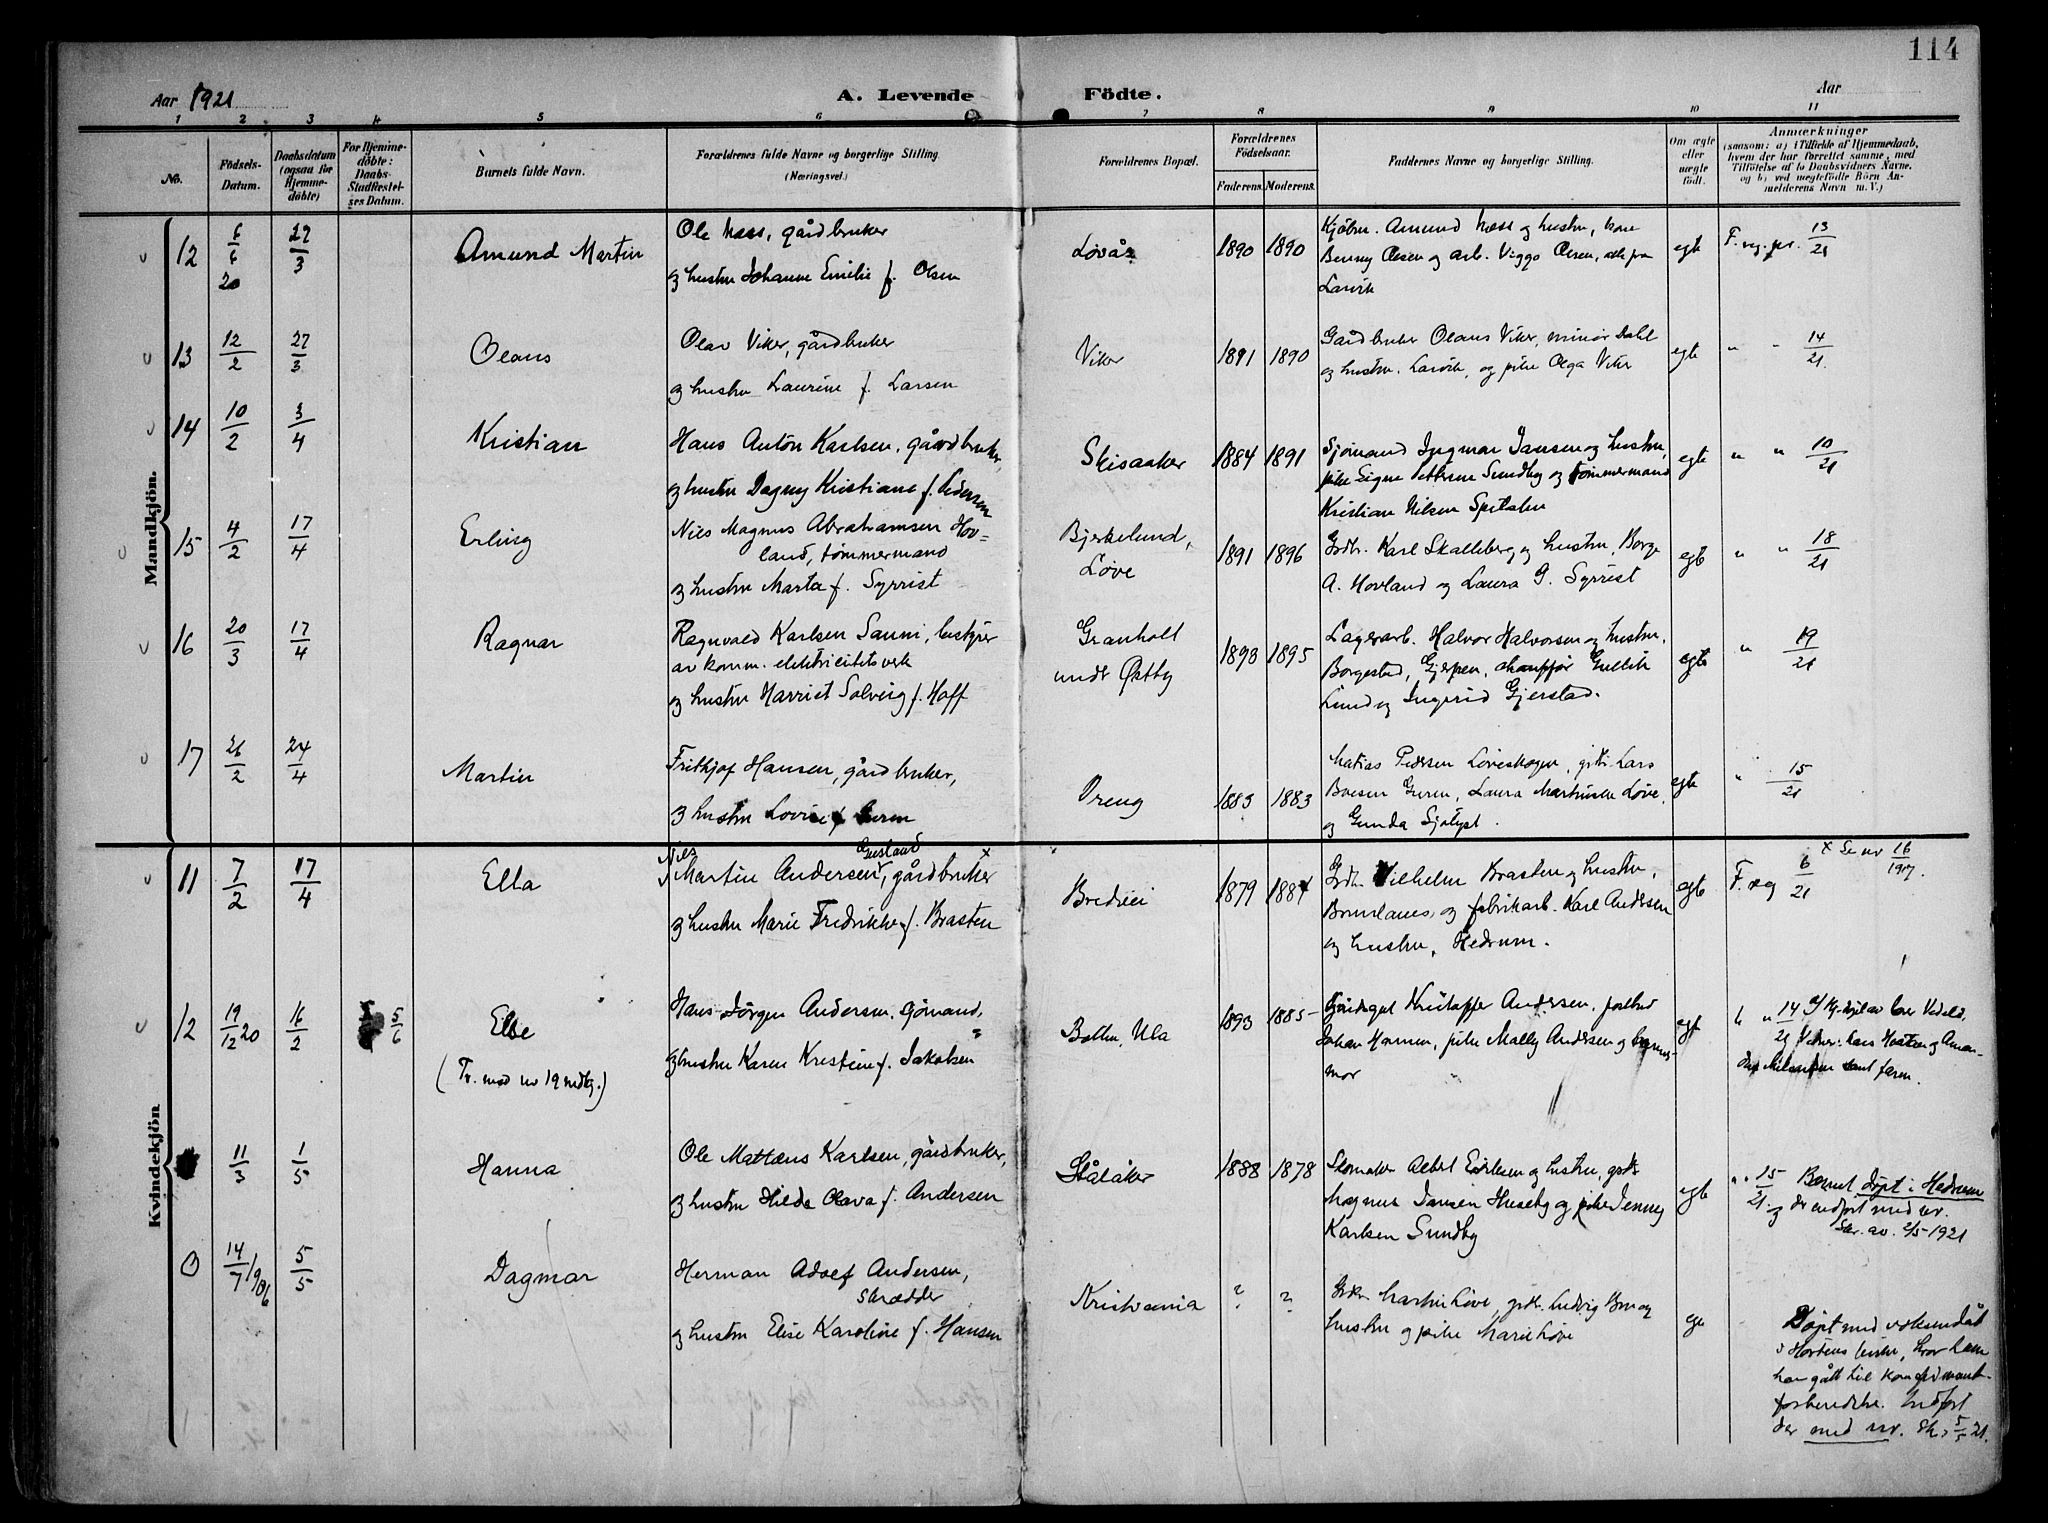 114
Aar 1921
A. Levende Födte.
Aar
1 2 3 4 5 6 7 8 9 10 11
No.
Födsels-Datum.
Daabsdatum (ogsaa for Hjemme-döbte)
For Hjemme-döbte: Daabs-Stadfæstel-ses Datum.
Barnets fulde Navn.
Forældrenes fulde Navne og borgerlige Stilling. (Næringsvei.)
Forældrenes Bopæl.
Forældrenes Födselsaar.
Faderens. Moderens.
Faddernes Navne og borgerlige Stilling.
Om ægte eller uægte födt.
Anmærkninger (saasom: a) i Tilfælde af Hjemmedaab, hvem der har forrettet samme, med Tilföielse af to Daabsvidners Navne, og b) ved uægtefödte Börn An-melderens Navn m. V.)
Mandkjön.
12 6/6 20 27/3 Amund Martin
Ole Næss, gårdbruker
og hustru Johanne Emilie f. Olsen
Løvås 1890 1890
Kjøbm. Amund Næss og hustru,
Benny Olsen og arb. Viggo Olsen, alle fra
Larvik
egte F. reg. pr. 13/21
13 12/2 27/3 Olaus
Olav Viker, gårdbruker
og hustru Laurine f. Larsen
Viker 1891 1890
Gårdbruker Olaus Viker, minør Dahl
og hustru, Larvik, og pike Olga Viker
egte " " 14/21.
14 10/2 3/4 Kristian
Hans Anton Karlsen, gårdbruker,
og hustru Dagny Kristiane f. Pedersen
Skisaaker 1884 1891
Sjømand Ingmar Jansen og hustru,
pike Signe Pettersen Sundby og tømmermand
Kristian Nilsen
egte " " 10/21
15 4/2 17/4 Erling
Nils Magnus Abrahamsen Hov-
land, tømmermand
og hustru Marta f. Syrrist
Bjerkelund,
Løve
1891 1896
Grdbr. Karl Skalleberg og hustru, Borge
A. Hovland og Laura G. Syrrist
egte " " 18/21
16 20/3 17/4 Ragnar
Ragnvald Karlsen Sanni, bestyrer
av komm. elektricitetsverk
og hustru Harriet Solveig f. Hoff
Granholt
undr Østby
1893 1895
Lagerarb. Halvor Halvorsen og hustru,
Borgestad, Gjerpen, chauffør Gullik
Lund og Ingerid Gjerstad.
egte " 19/21
17 26/2 24/4 Martin
Frithjof Hansen, gårdbruker,
og hustru Lovise f.
1883 1883
Matias Pedersen Løveskogen, grdbr. Lars
Laura Martinsen Løve,
og Gunda Sjølyst.
egte " 15/21
Kvindekjön
11 7/2 17/4 Ella
Nils Martin Andersen Gustand, gårdbruker
og hustru Marie Fredrikke f. Brasten
Bredvei 1879 1884
Grdbr. Vilhelm Brasten og hustru,
Brunlanes, og fabrikarb. Karl Andersen
og hustru, Hedrum.
egte F. reg 6/21
x Se nr 16/1917.
12 19/12 20 16/2 5/6 Else
(Tv. med nr 19 mdkj.)
Hans Jörgen Andersen, sjømand,
og hustru Karen Kristine f. Jakobsen
Bakken, Ula 1893 1885
Andersen,
Johan Hansen, pike Mally Andersen og
mor
egte " " 14/21
samt faren.
11/3 1/5 Hanna
Ole Mattæus Karlsen, gårdbruker,
og hustru Hilda Olava f. Andersen
Stålåker 1888 1878
Skomaker Albert Eriksen og hustru, grdbr.
Magnus Jansen Huseby og pike Jenny
Karlsen Sundby
egte " " 15/21. Barnet døpt i Hedrum
og der indført med nr.
Skr. av 2/5-1921
0 14/7 1906 5/5 Dagmar
Herman Adolf Andersen,
skrædder
og hustru Elise Karoline f. Hansen
Kristiania ? ?
Grdbr. Martin Løve, grdbr. Ludvig Bre og
hustru og pike Marie Løve
egte
Døpt med voksendåb
i Hortens kirke, hvor hun
har gått til konfirmant-
forberedelse. Indført
der med nr. Sk. 5/5 21.